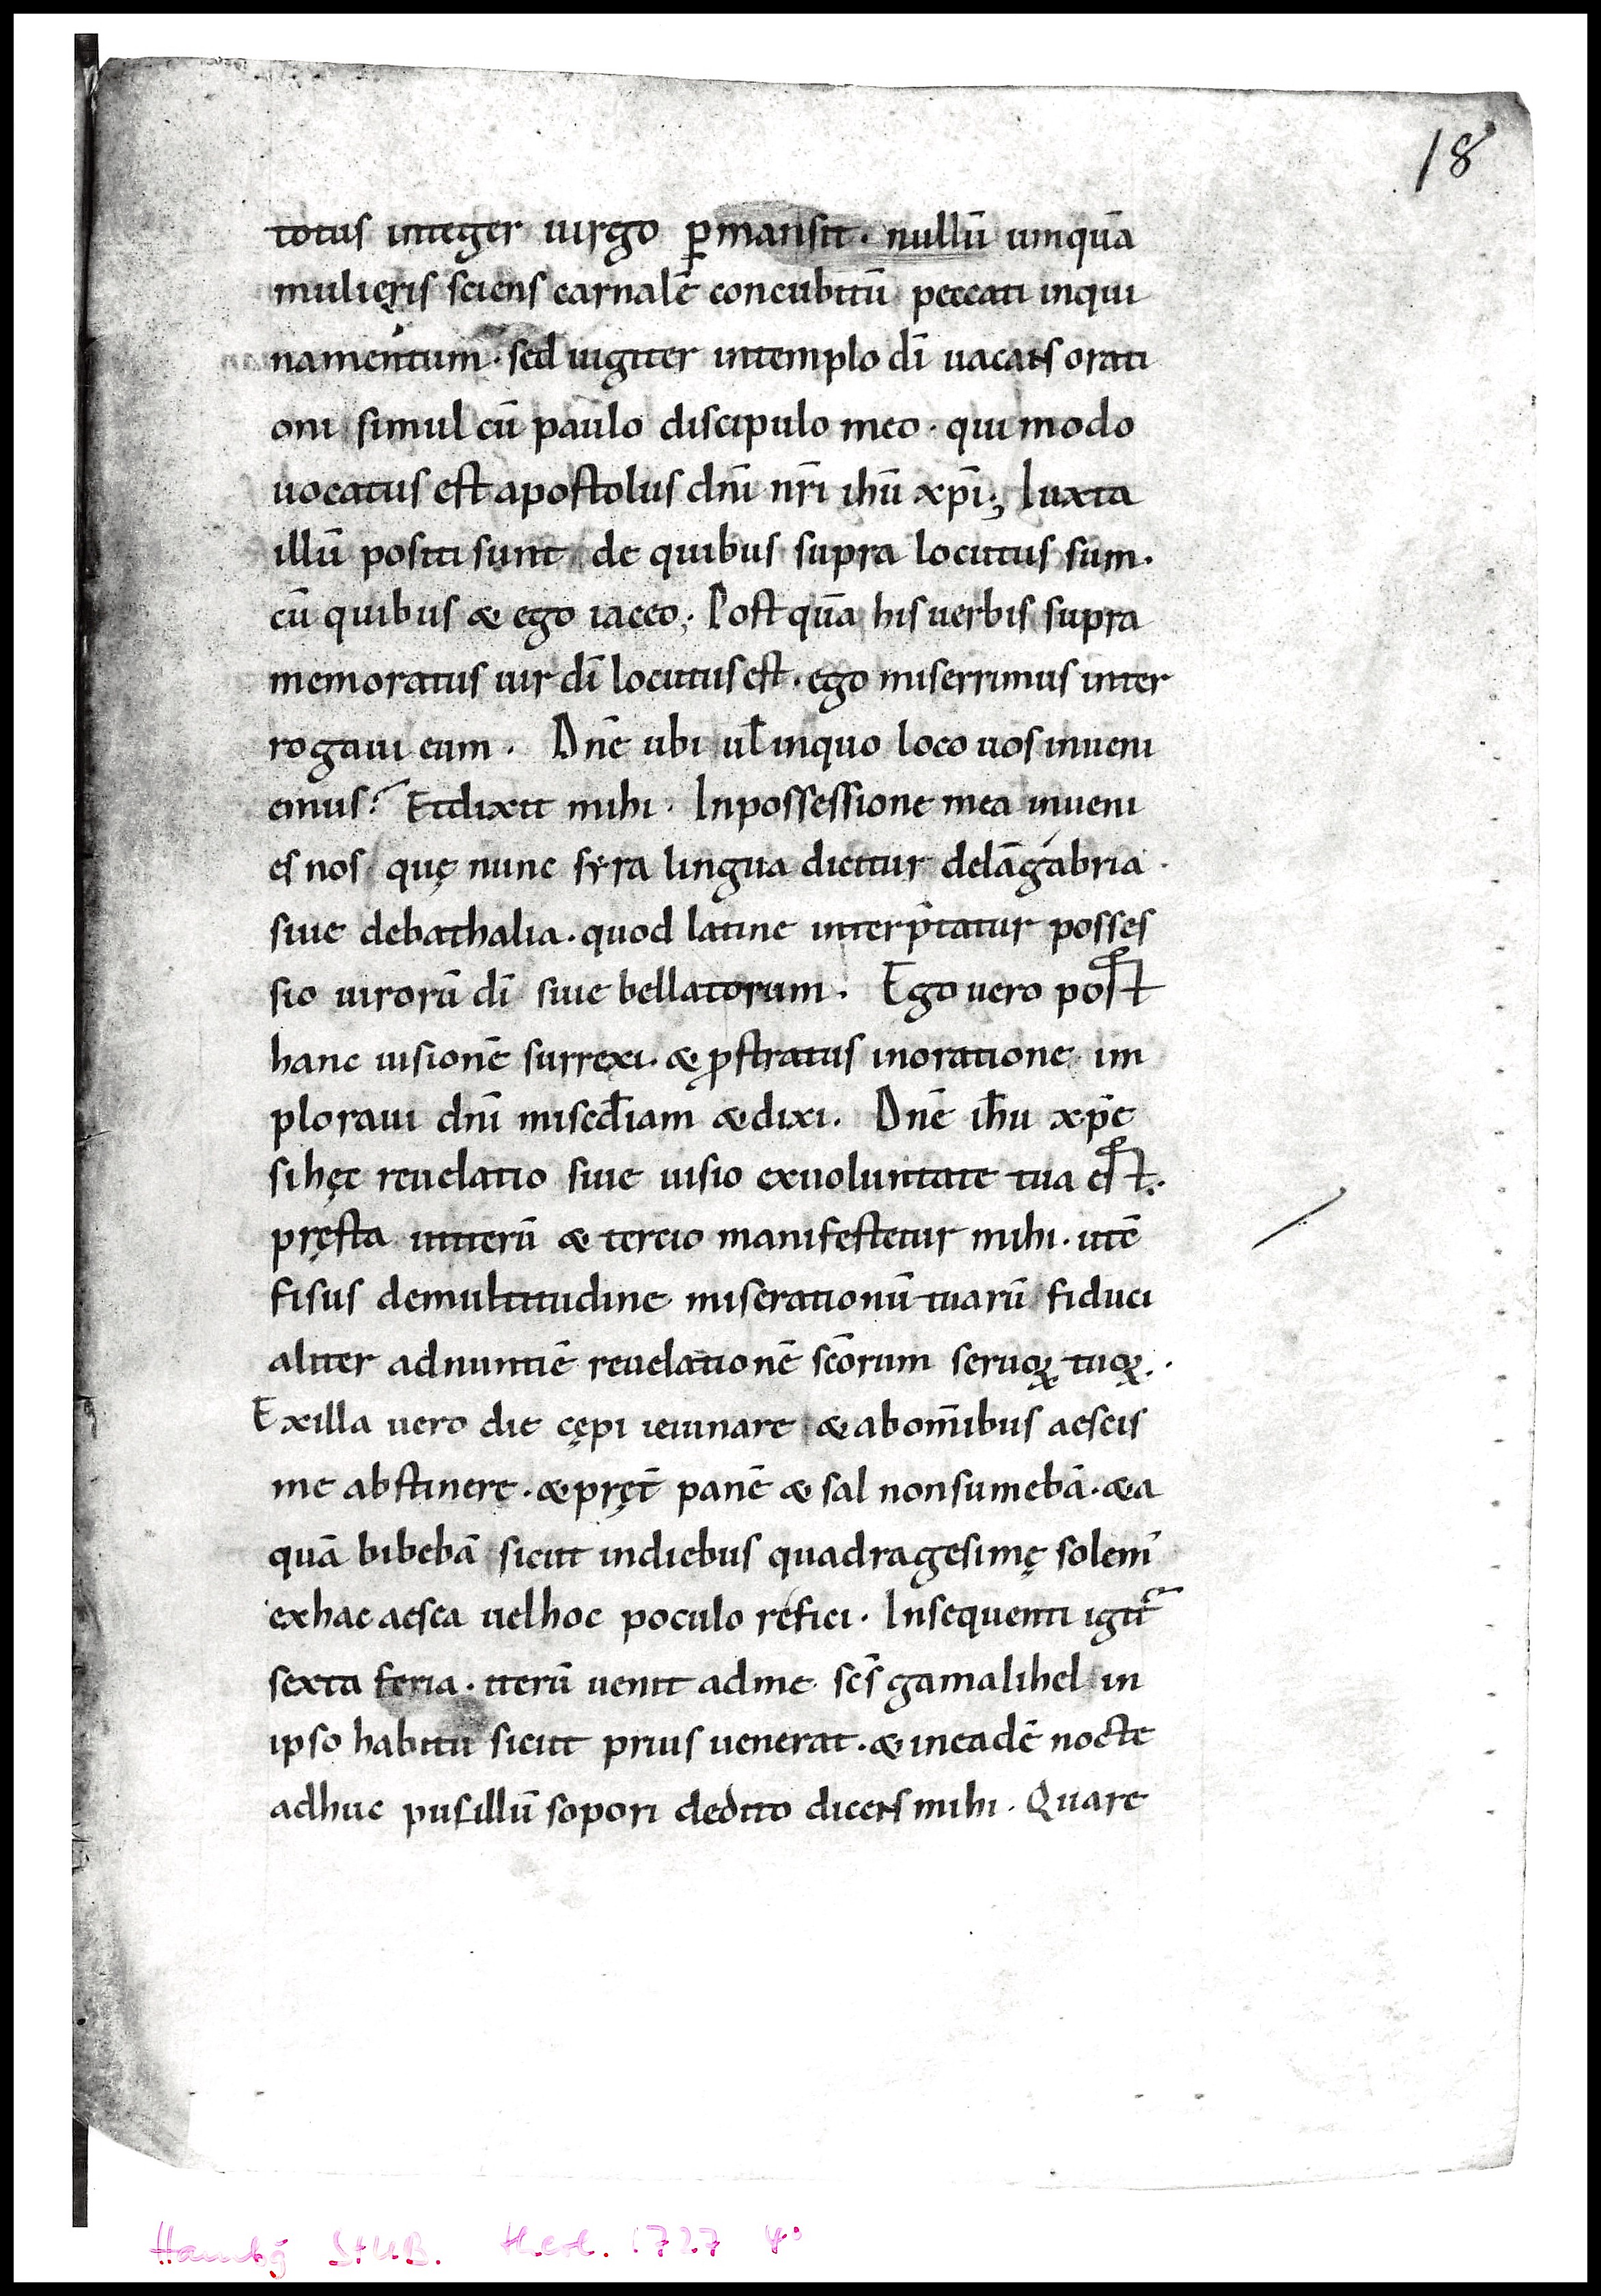 18
totus integer uirgo ꝑmansit · nullū umquā
mulieris sciens carnalē concubitū peccati inqui
namentum · sed iugiter intemplo dī uacans orati
oni simul cū paulo discipulo meo · qui modo
uocatus est apostolus dnī nrī ihū xpī; Iuxta
illū positi sunt de quibus supra locutus sum.
cū quibus & ego iaceo; Post quā his uerbis supra
memoratus uir dī locutus est · ego miserrimus inter
rogaui eum . Dnē ubi ul̄ inquo loco uos inueni
emus? Etdixit mihi . Inpossessione mea inueni
es nos quę nunc syra lingua dicitur delāgabria ·
siue debathalia · quod latine interp̄tatur posses
sio uirorū dī siue bellatorum . Ego uero post
hanc uisionē surrexi · & ꝓstratus inoratione im
ploraui dnī misēdiam & dixi . Dnē ihū xpē
sihęc reuelatio siue uisio exuoluntate tua est.
pręsta utiterū & tercio manifestetur mihi · utē
fisus demultitudine miserationū tuarū fiduci
aliter adnuntiē reuelationē scōrum seruoꝝ tuoꝝ .
Exilla uero die cępi ieiunare & abom̄ibus aescis
me abstinere · & pręt̄ panē & sal nonsumebā · & a
quā bibebā sicut indiebus quadragesimę solem̄
exhac aesca uelhoc poculo refici · Insequenti igit᷑
sexta feria · iterū uenit adme sc̄s gamalihel in
ipso habitu sicut prius uenerat · & ineadē nocte
adhuc pusillū sopori dedito dicens mihi . Quare
Hambg StUB. 1727 4°